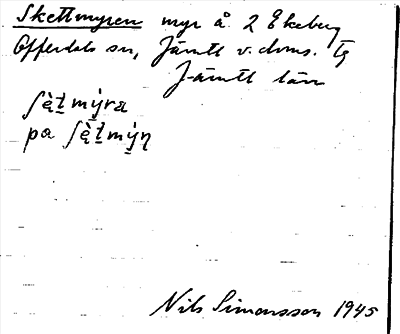 Skettmyren myr å 2 Ekeberg
Offerdals sn, Jämtl v. doms. Tg
Jämtl län
ʃæ̀t̠ my̱ra
pa ʃæ̀t̠ my̱ɳ
Nils Simonsson 1945